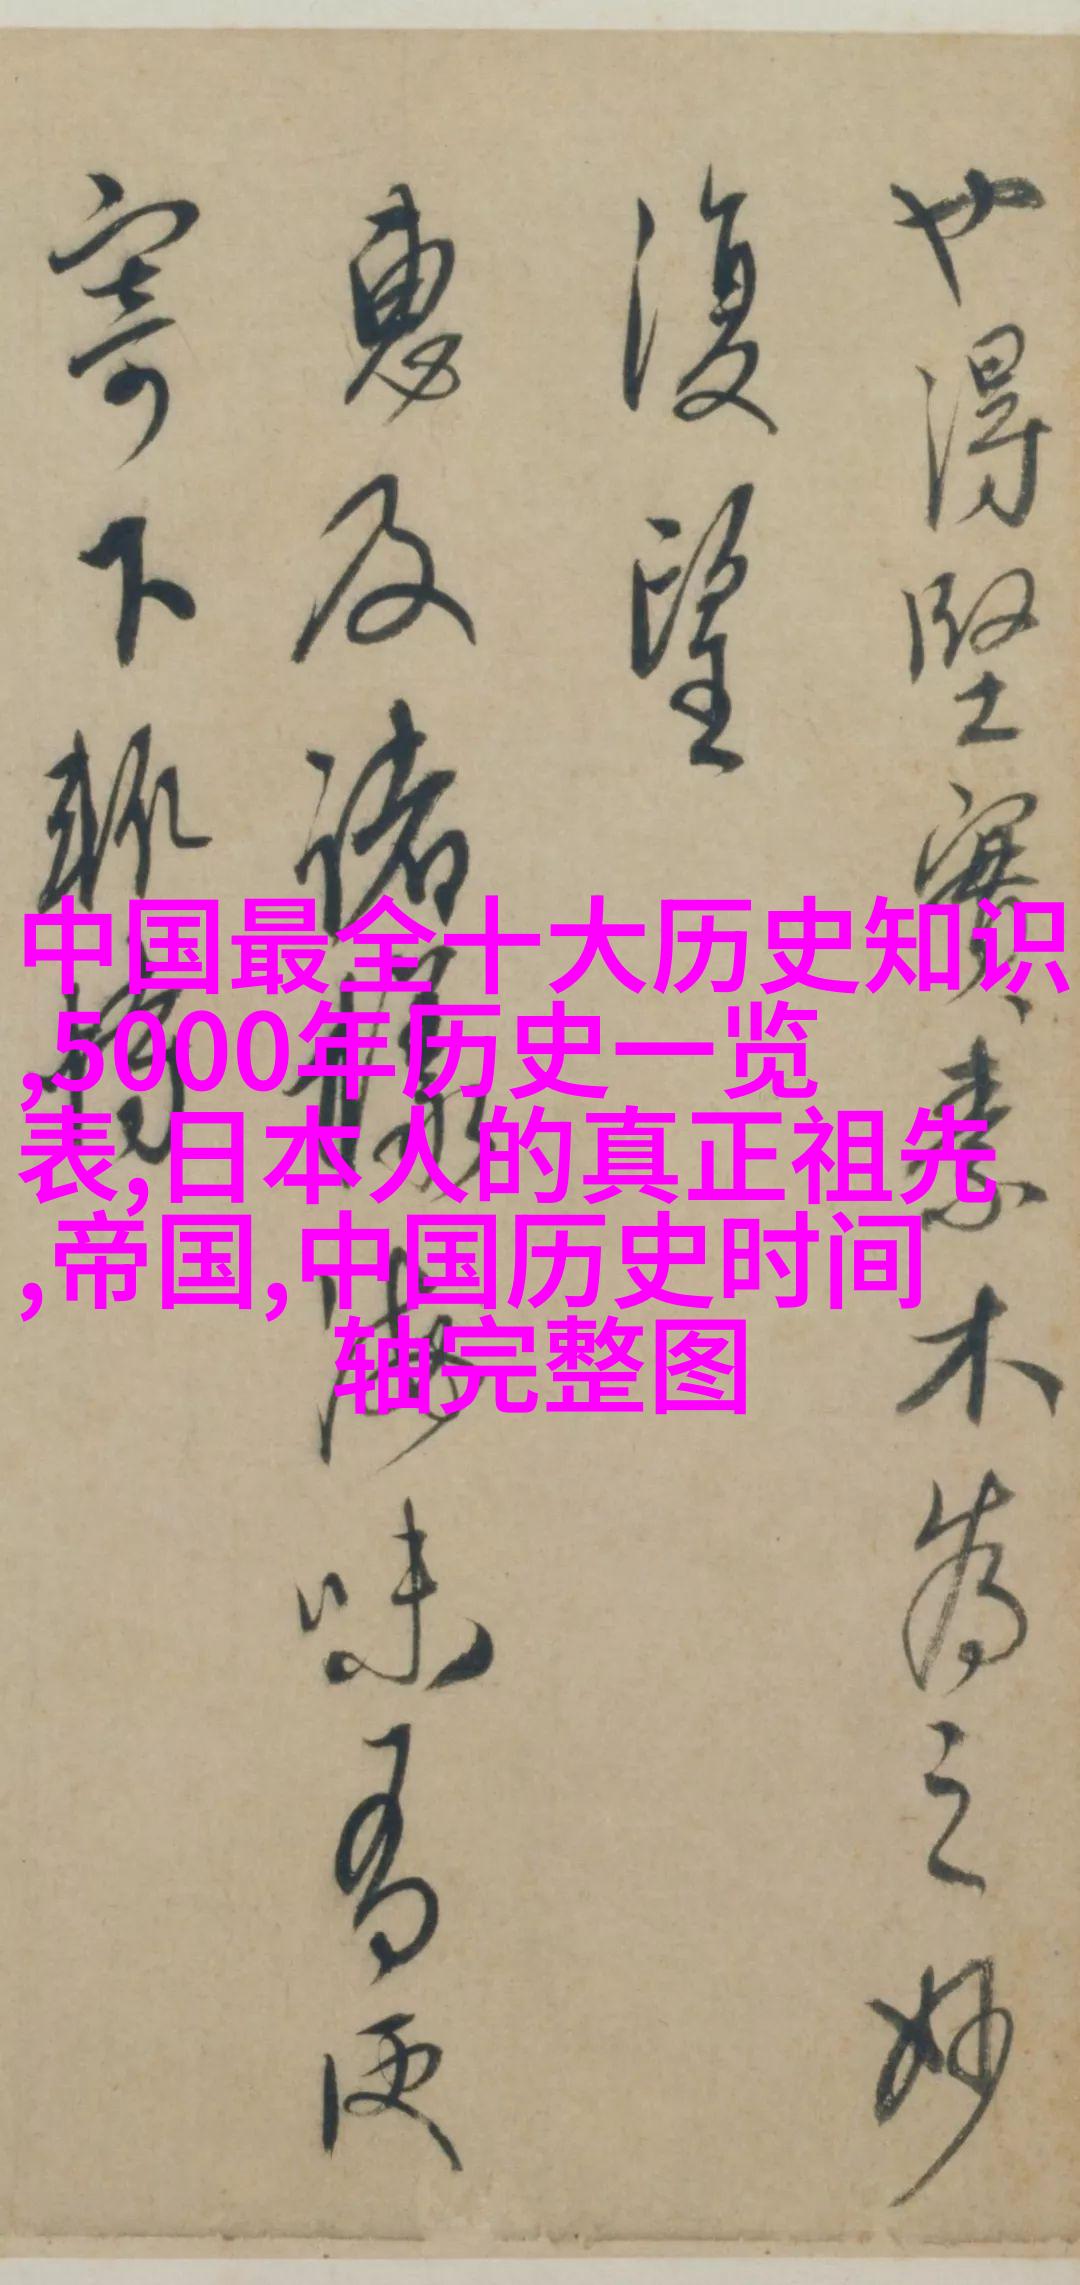 也得堅實素木為之妙
復望
惠及諸海味有便
寄下
中国最全十大历史知识
,5000年历史一览
表,日本人的真正祖先
,帝国,中国历史时间
轴完整图